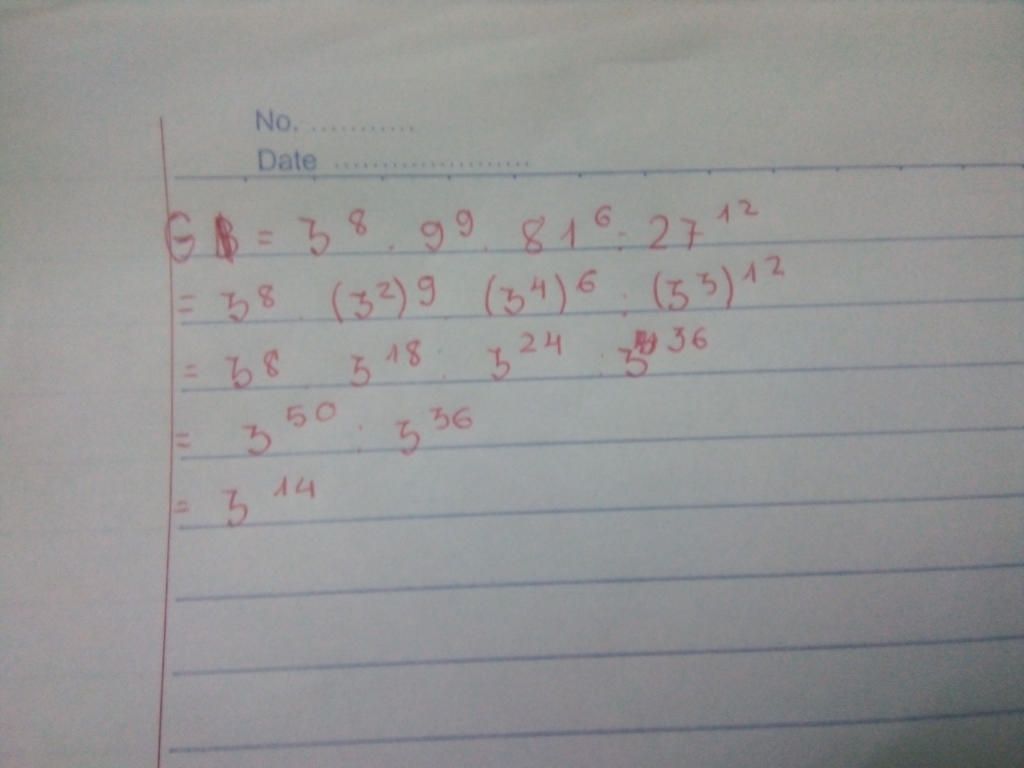 No. ...........
Date ....................
G = 3^8 . 9^9 . 81^6 : 27^12
= 3^8 . (3^2)^9 (3^4)^6 : (3^3)^12
= 3^8 . 3^18 . 3^24 . 3^36
= 3^50 : 3^36
= 3^14